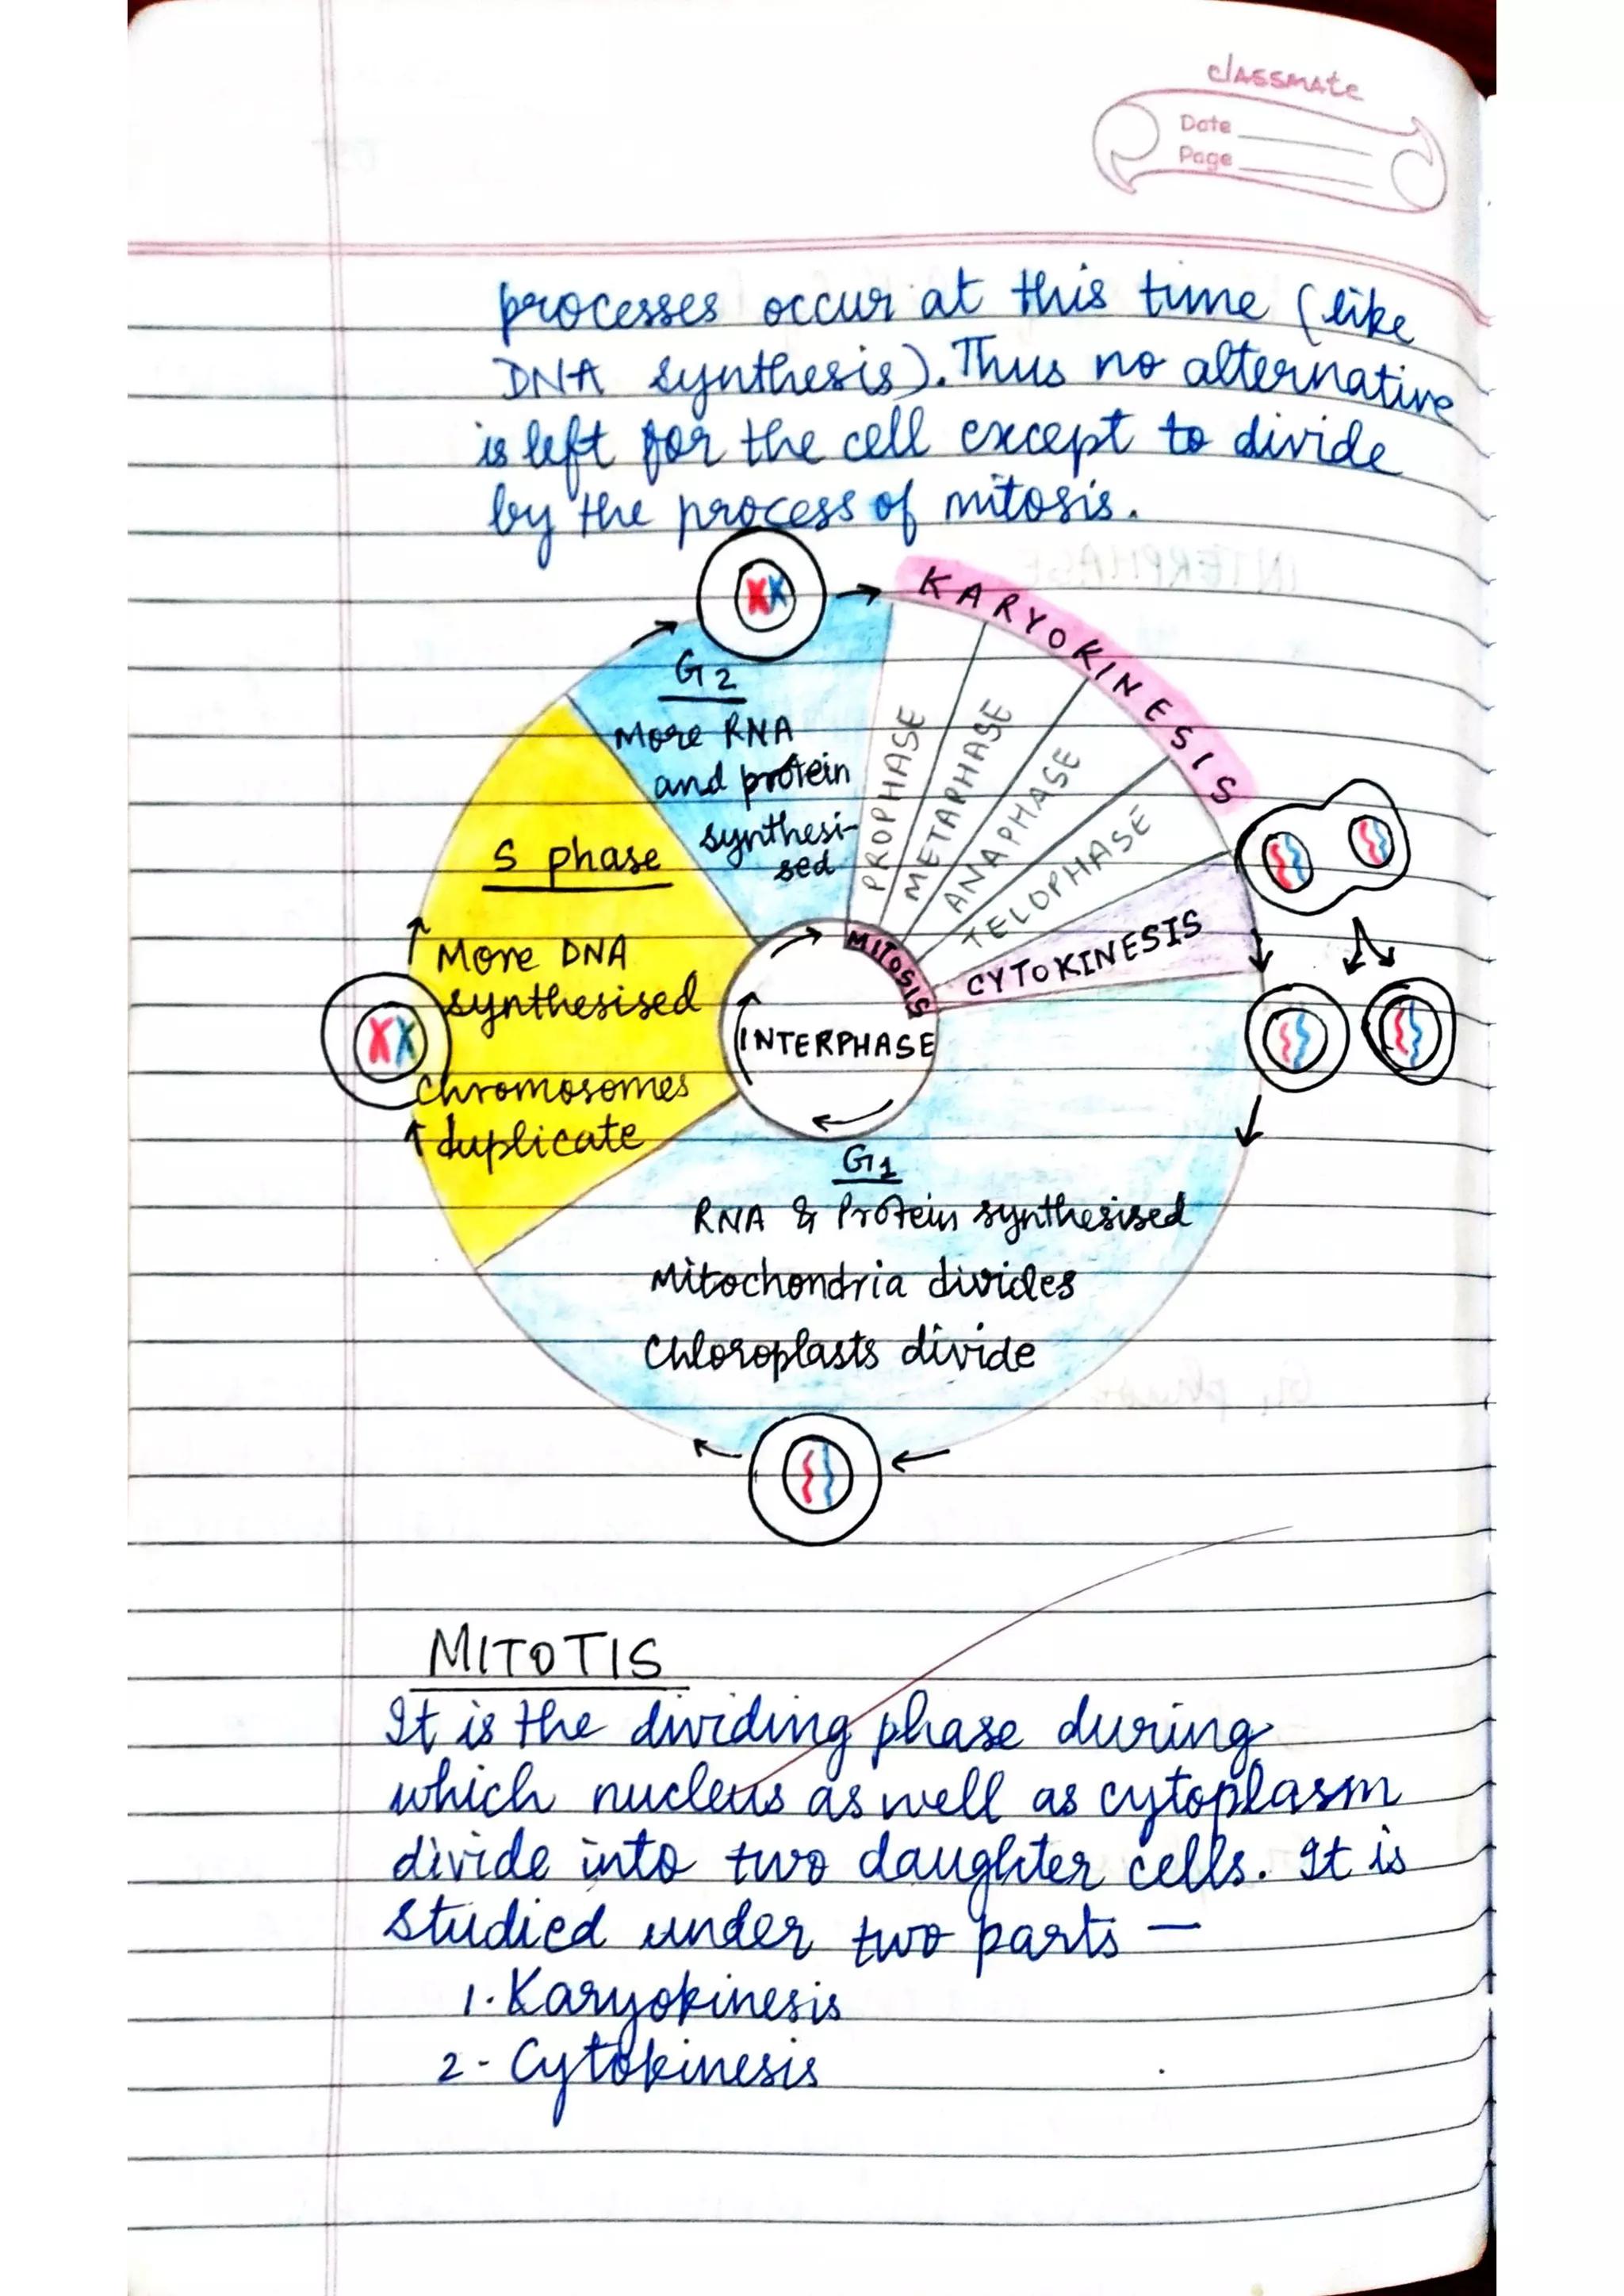 classmate
Date
Page
processes occur at this time (like
DNA synthesis). Thus no alternative
is left for the cell except to divide
by the process of mitosis.
KARYOKINESIS
G2
More RNA
and protein
synthesi-
sed
PROPHASE
METAPHASE
ANAPHASE
TELOPHASE
CYTOKINESIS
MITOSIS
INTERPHASE
S phase
More DNA
synthesised
Chromosomes
duplicate
G1
RNA & Protein synthesised
Mitochondria divides
Chloroplasts divide
MITOTIS
It is the dividing phase during
which nucleus as well as cytoplasm
divide into two daughter cells. It is
studied under two parts —
1. Karyokinesis
2 - Cytokinesis